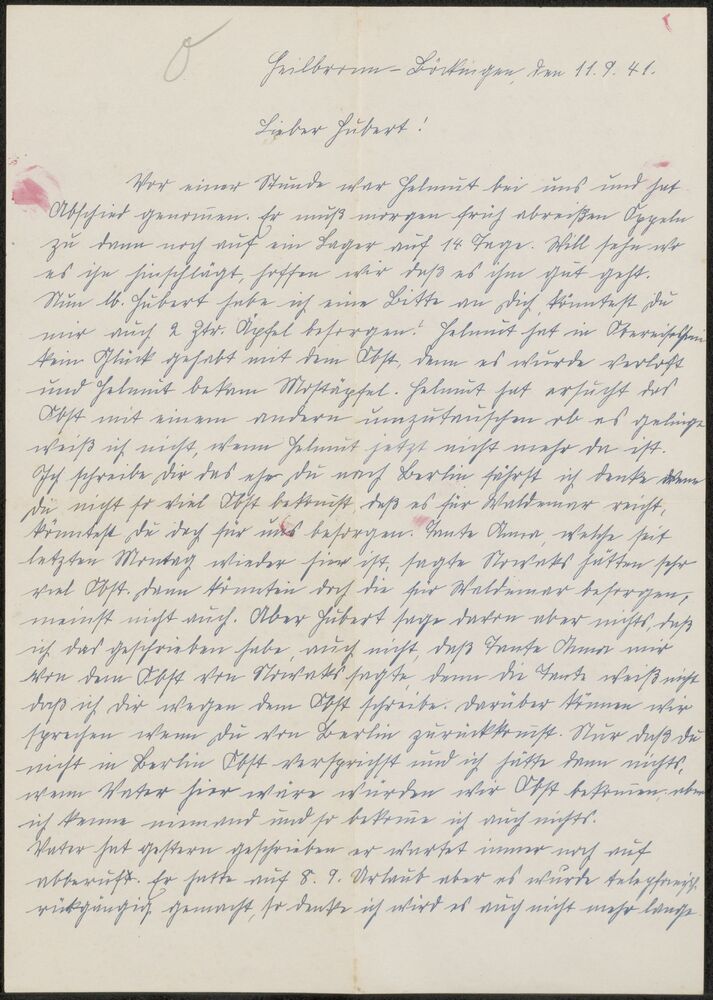 Heilbronn-Böckingen, den 11.9.41.
Lieber Hubert!
Vor einer Stunde war Helmut bei uns und hat
Abschied genommen. Er muß morgen früh abreißen Oppeln
zu dann noch auf ein Lager auf 14 Tage. Will sehn wo
es ihn hinschlägt, hoffen wir daß es ihm gut geht.
Nun lb. Hubert habe ich eine Bitte an Dich, könntest Du
mir auch 2 Ztr. Äpfel besorgen! Helmut hat in
kein Glück gehabt mit dem Obst, denn es wurde verlost
und Helmut bekam Mostäpfel. Helmut hat ersucht das
Obst mit einem andern umzutauschen ob es gelingt
weiß ich nicht, wenn Helmut jetzt nicht mehr da ist.
Ich schreibe Dir das ehe Du nach Berlin fährst ich denke wenn
Du nicht so viel Obst bekomst, daß es für Waldemar reicht,
könntest Du doch für uns besorgen. Tante Anna, welche seit
letzten Montag wieder hier ist, sagte Nowaks hätten sehr
viel Obst, dann könnten doch die für Waldemar besorgen,
meinst nicht auch. Aber Hubert sage davon aber nichts, daß
ich das geschrieben habe, auch nicht, daß Tante Anna mir
von dem Obst von Nowaks sagte, denn die Tante weiß nicht
daß ich Dir wegen dem Obst schreibe. Darüber können wir
sprechen wenn Du von Berlin zurückkomst. Nur daß Du
nicht in Berlin Obst versprichst und ich hätte dann nichts,
wenn Vater hier wäre würden wir Obst bekommen, aber
ich kenne niemand und so bekomme ich auch nichts.
Vater hat gestern geschrieben er wartet immer noch auf
abberuft. Er hatte auf 8.9. Urlaub aber es wurde telephonisch
rückgängig gemacht, so denke ich wird es auch nicht mehr lange